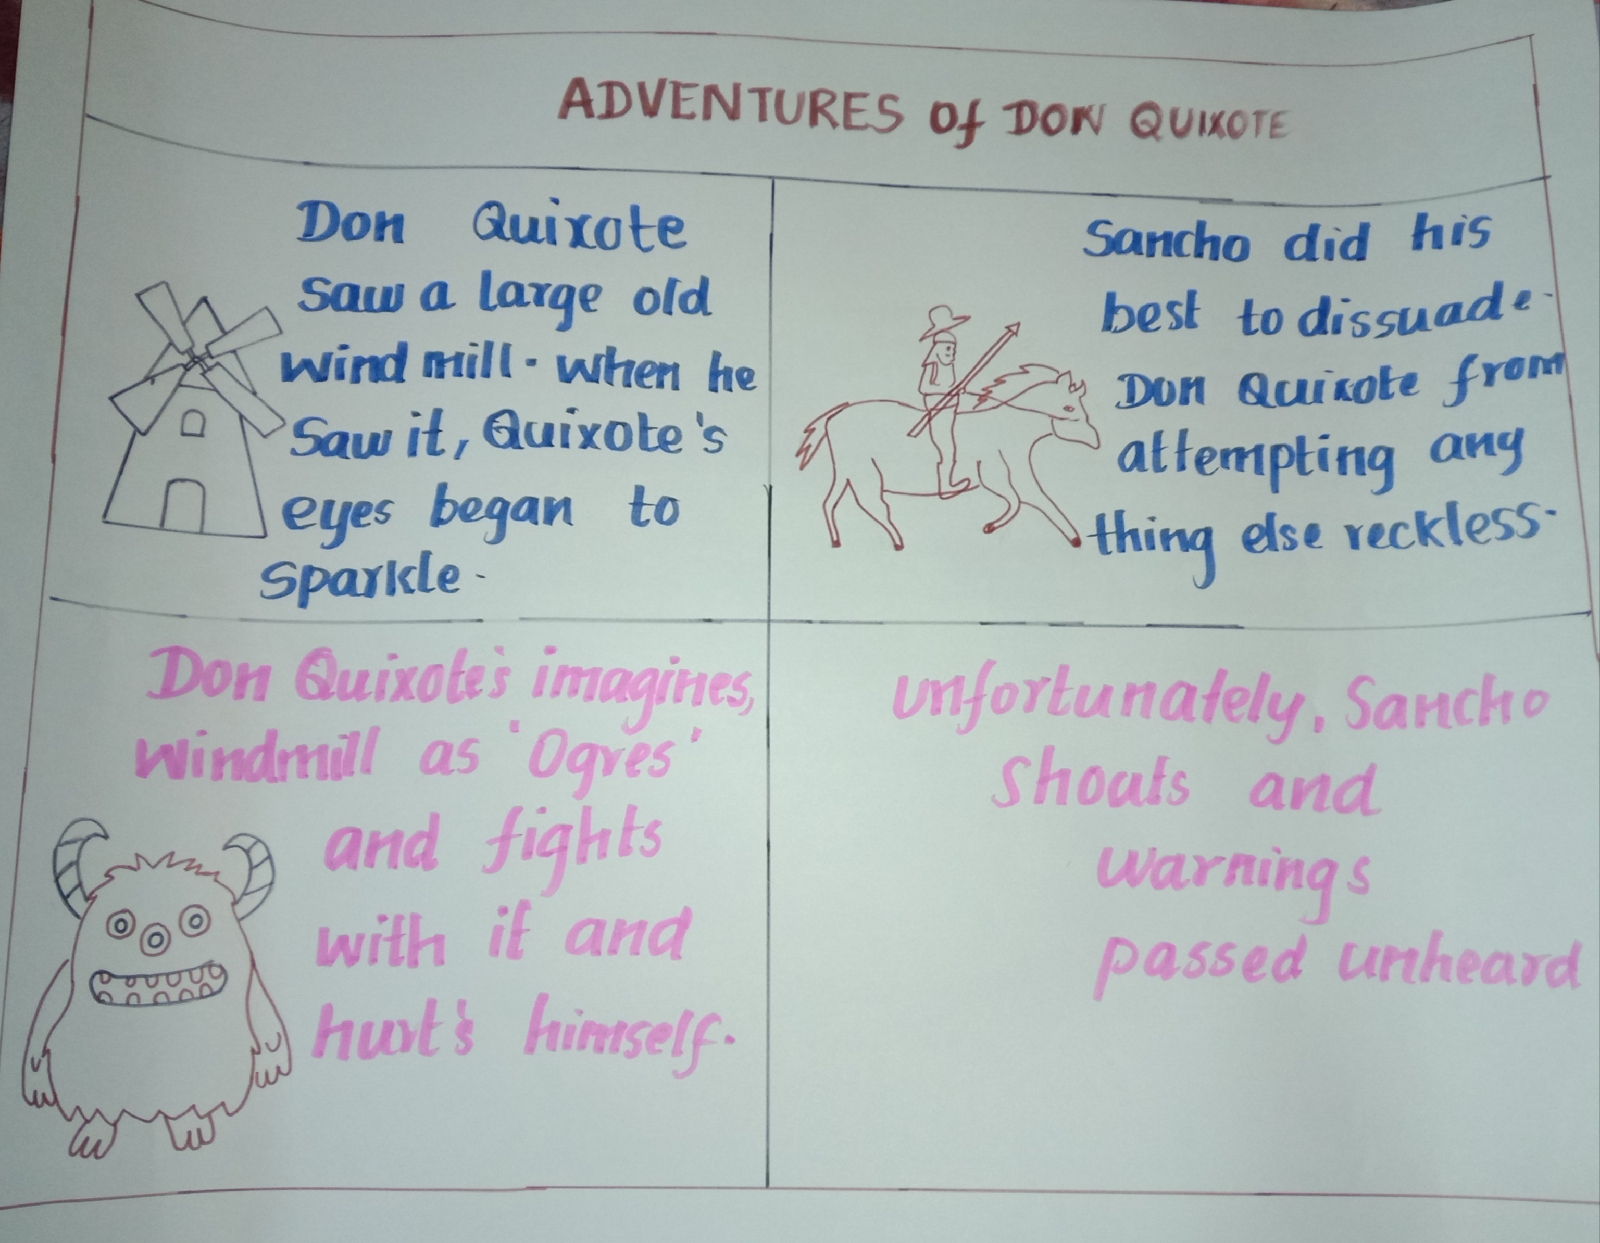 ADVENTURES Of DON QUIXOTE
Don Quixote
Saw a large old
Wind mill. When he
Saw it, Quixote's
eyes began to
Sparkle.
Sancho did his
best to dissuade.
Don Quixote from
attempting any
thing else reckless.
Don Quixote's imagines,
Windmill as 'Ogres'
and fights
with it and
hurt's himself.
Unfortunately, Sancho
Shouts and
Warnings
passed unheard